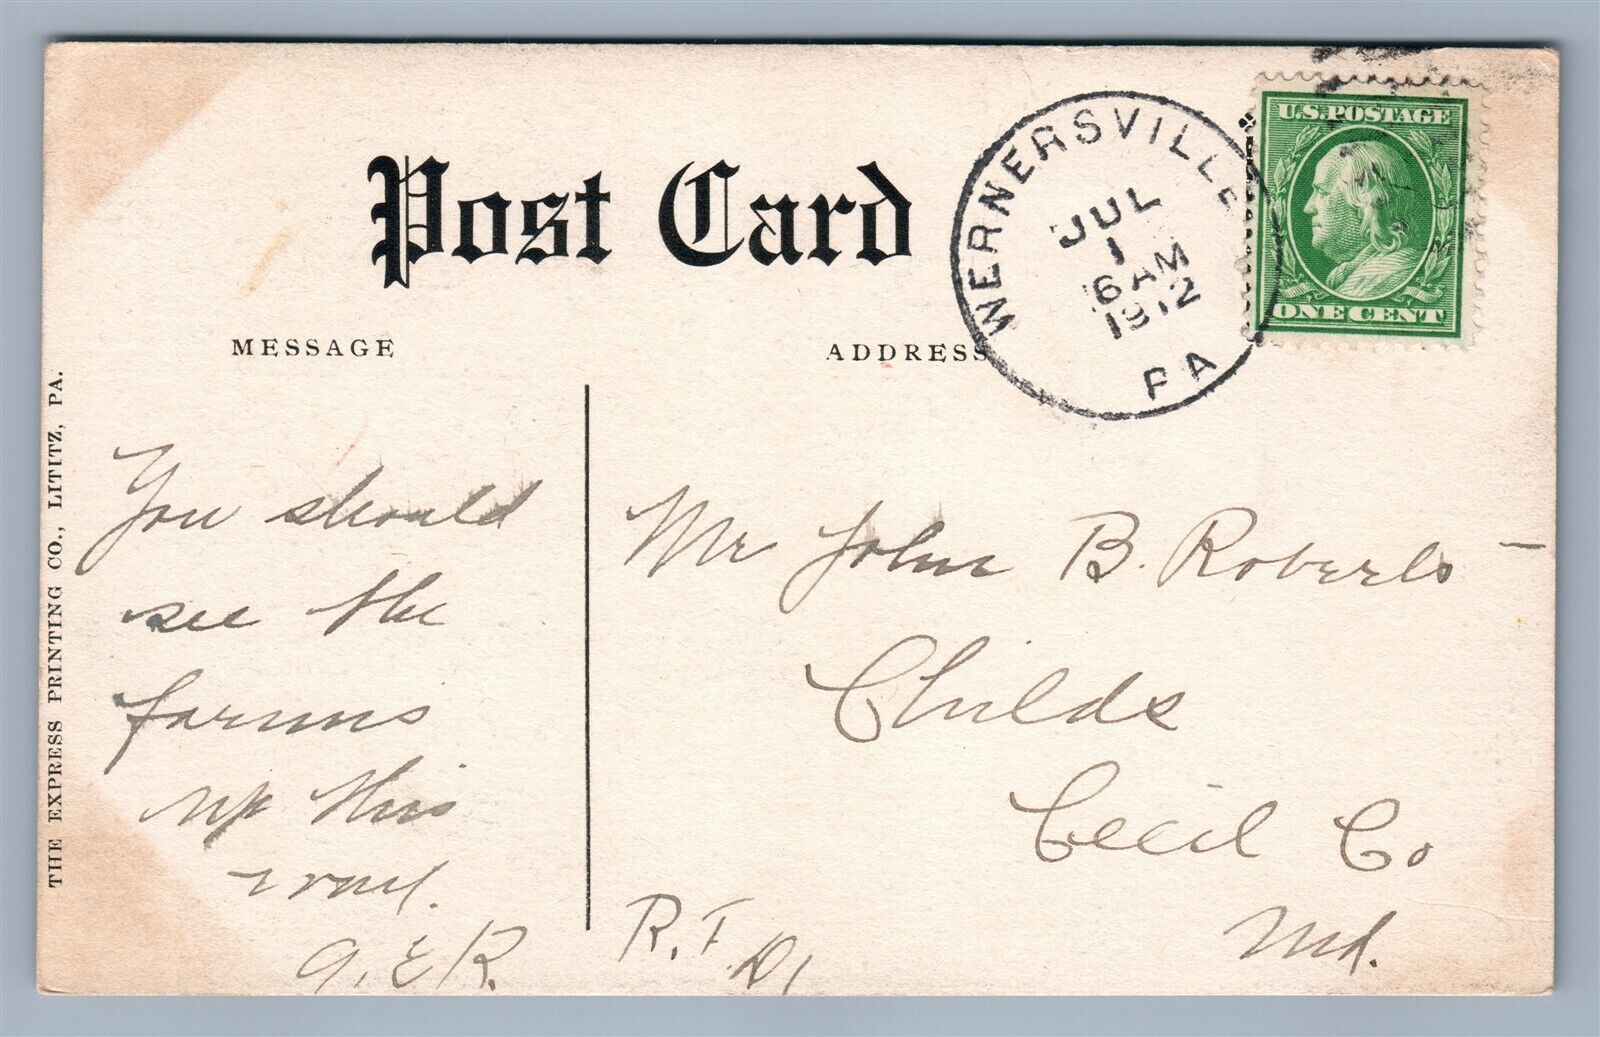 Post Card
WERNERSVILLE
JUL
1
6 AM
1912
PA
U.S. POSTAGE
ONE CENT
MESSAGE
ADDRESS
THE EXPRESS PRINTING CO., LITITZ, PA.
You should
see the
farms
up this
way.
G. E. R.
Mr John B. Roberts
Childs
Cecil Co
Md.
R. F. D 1